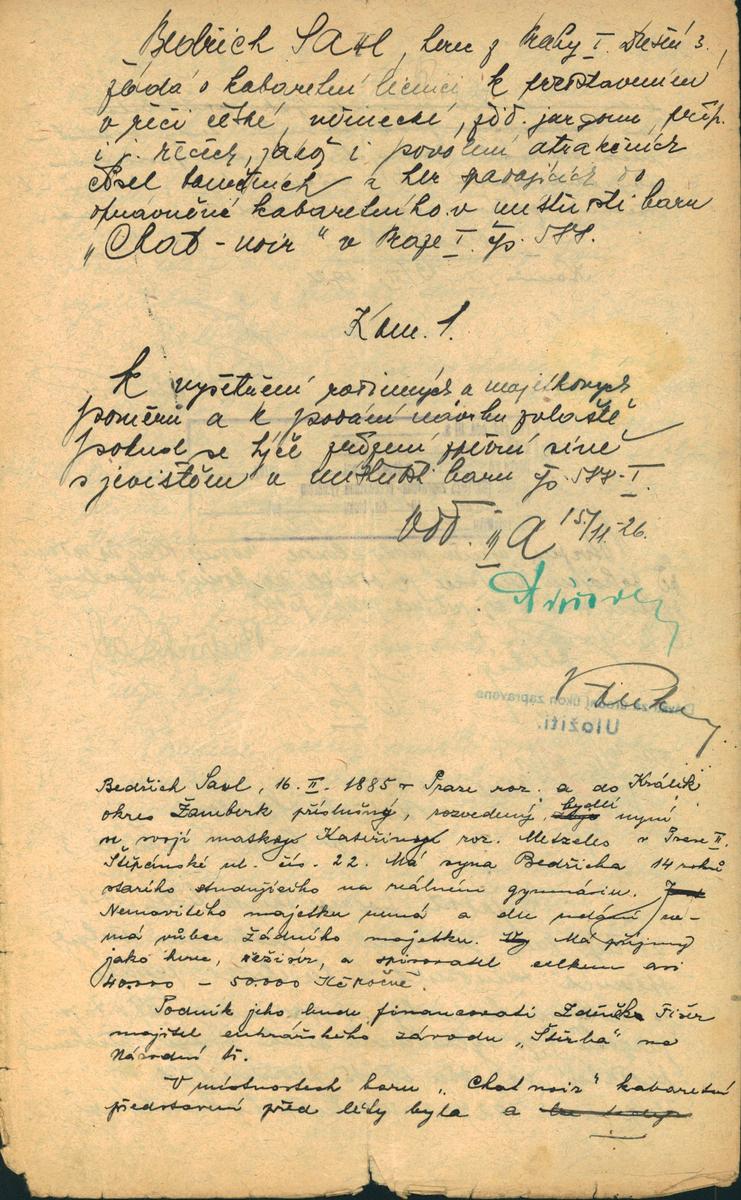 Bedřich Saxl, herec z Prahy I. Dušní 3.,
žádá o kabaretní licenci k představením
v řeči české, německé, žid. jargonu, příp.
i j. řečech, jakož i povolení atrakčních
čísel tanečních a her
oprávnění kabaretního v místnosti baru
„Chat-noir" v Praze I. čp. 588.
Kom. I.
K vyšetření rodinných a majetkových
poměrů a k podání návrhu zvláště
pokud se týče zřízení zpěvní síně
s jevištěm v baru čp. 588-I.
Odd. II A 15/11-26.
Uložiti.
Bedřich Saxl, 16. II. 1885 v Praze roz. a do Králík
okres Žamberk příslušný, rozvedený, bydlí nyní
u svojí matky Kateřiny roz. v Praze II.
Štěpánské ul. čís. 22. Má syna Bedřicha 14 roků
starého studujícího na reálném gymnasiu.
Nemovitého majetku nemá a dle udání ne-
má vůbec žádného majetku. Má příjmy
jako herec, režisér, a spisovatel celkem asi
40.000 – 50.000 Kč ročně.
Podnik jeho bude financovati Zdeněk Fišer
majitel cukrářského závodu „Štěrba" na
Národní tř.
V místnostech baru „Chat noir" kabaretní
představení před léty byla a